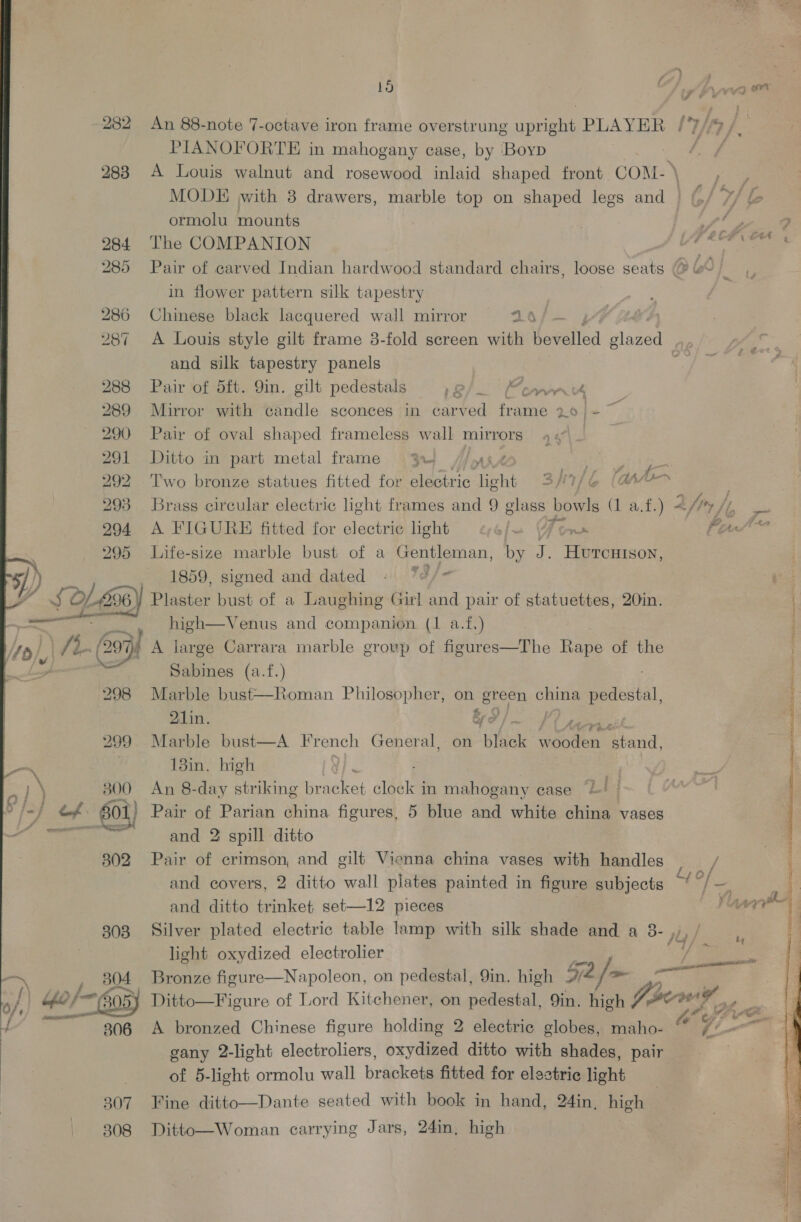 15
282 An 88-note 7-octave iron frame overstrung upright PLAYER
PIANOFORTE in mahogany case, by Boyd
283 A Louis walnut and rosewood inlaid shaped front COM-
MODE with 3 drawers, marble top on shaped legs and
ormolu mounts
284 The COMPANION
285 Pair of carved Indian hardwood standard chairs, loose seats
in flower pattern silk tapestry
286 Chinese black lacquered wall mirror
287 A Louis style gilt frame 3-fold screen with bevelled glazed
and silk tapestry panels
288 Pair of 5ft. 9in. gilt pedestals
289 Mirror with candle sconces in carved frame
290 Pair of oval shaped frameless wall mirrors
291 Ditto in part metal frame
292 Two bronze statues fitted for electric light
293 Brass circular electric light frames and 9 glass bowls (1 a.f.)
294 A FIGURE fitted for electric light
295 Life-size marble bust of a Gentleman, by J. Hutchison,
1859, signed and dated
296 Plaster bust of a Laughing Girl and pair of statuettes, 20in.
high—Venus and companion (1 a.f.)
297 A large Carrara marble group of figures—The Rape of the
Sabines (a.f.)
298 Marble bust—Roman Philosopher, on green china pedestal,
21in.
299 Marble bust—A French General, on black wooden stand,
13in. high
300 An 8-day striking bracket clock in mahogany case
301 Pair of Parian china figures, 5 blue and white china vases
and 2 spill ditto
302 Pair of crimson and gilt Vienna china vases with handles
and covers, 2 ditto wall plates painted in figure subjects
and ditto trinket set—12 pieces
303 Silver plated electric table lamp with silk shade and a 3-
light oxydized electrolier
304 Bronze figure—Napoleon, on pedestal, 9in. high
305 Ditto—Figure of Lord Kitchener, on pedestal, 9in. high
306 A bronzed Chinese figure holding 2 electric globes, maho-
gany 2-light electroliers, oxydized ditto with shades, pair
of 5-light ormolu wall brackets fitted for electric light
307 Fine ditto—Dante seated with book in hand, 24in. high
308 Ditto—Woman carrying Jars, 24in. high